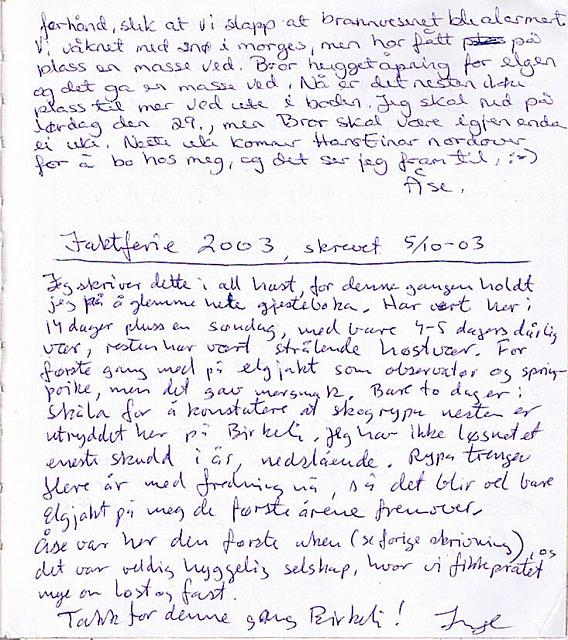 forhånd, slik at vi slapp at brannvesenet ble alarmert
Vi våknet med snø i morges, men har fått på
plass en masse ved. Bror hugget åpning for elgen
og det ga en masse ved. Nå er det nesten ikke
plass til mer ved ute i boden. Jeg skal ned på
lørdag den 29., men Bror skal være igjen enda
ei uke. Neste uke kommer Hans Einar nordover
for å bo hos meg, og det ser jeg fram til, :-)
Åse.
Jaktferie 2003, skrevet 5/10-03
Jeg skriver dette i all hast, for denne gangen holdt
jeg på å glemme hele gjesteboka. Har vært her i
14 dager pluss en søndag, med bare 4-5 dagers dårlig
vær, resten har vært strålende høstvær. For
første gang med på elgjakt som observatør og spring-
poike, men det gav mersmak. Bare to dager i
Skåla for å konstatere at skogrypa nesten er
utryddet her på Birkeli. Jeg har ikke løsnet et
eneste skudd i år, nedslående. Rypa trenger
flere år med fredning nå, så det blir vel bare
elgjakt på meg de første årene fremover.
Åse var her den første uken (se forige skrivning), og
det var veldig hyggelig selskap, hvor vi fikk pratet
mye om løst og fast.
Takk for denne gang Birkeli! Inge